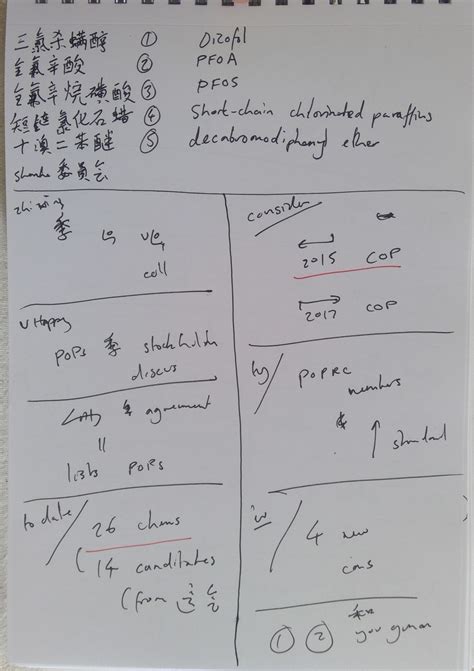 三氯杀螨醇 ① Dicofol
全氟辛酸 ② PFOA
全氟辛烷磺酸 ③ PFOS
短链氯化石蜡 ④ Short-chain chlorinated paraffins
十溴二苯醚 ⑤ decabromodiphenyl ether
委員会
季
coll
v Happy
POPs 季 stockholm
discus
agreement
||
lists POPs
to date
26 chems
14 candidates
(from
consider
2015 COP
2017 COP
POPRC
members
↑ standard
4 new
cons
① ②